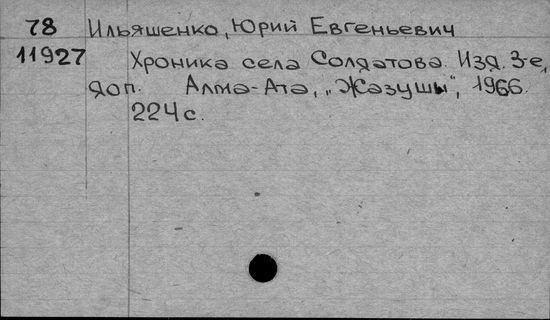 78 Ильяшенко, Юрий Евгеньевич
11927 Хроника села Солдатова. Изд. 3-е,
доп. Алма-Ата, „Жазушы", 1966.
224 с.